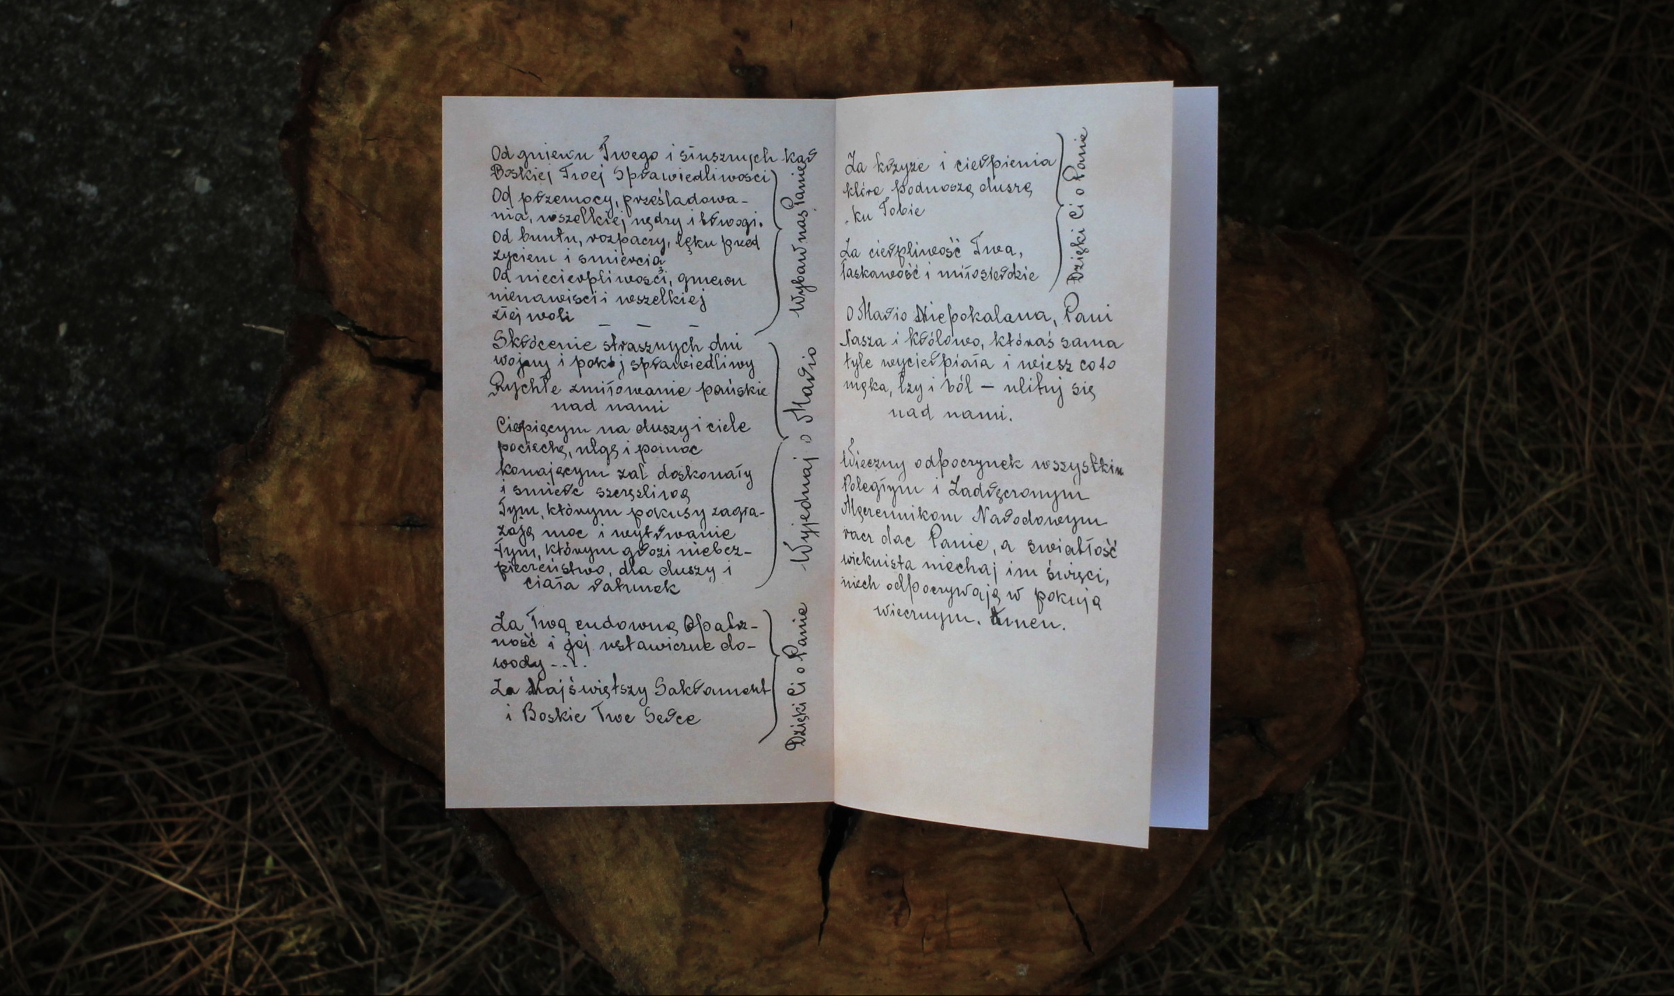 Od gniewu Twego i słusznych kar
Boskiej Twej Sprawiedliwości
Od przemocy, prześladowa-
nia, wszelkiej nędzy i trwogi.
Od buntu, rozpaczy, lęku przed
życiem i śmiercią
Od niecierpliwości, gniewu
nienawiści i wszelkiej
złej woli
Wybaw nas Panie
Skrócenie strasznych dni
wojny i pokój sprawiedliwy
Rychłe zmiłowanie pańskie
nad nami
Cierpiącym na duszy i ciele
pociechę, ulgę i pomoc
konającym żal doskonały
i śmierć szczęśliwą
Tym, którym pokusy zagra-
żają moc i wytrwanie
Tym, którym grozi niebez-
pieczeństwo, dla duszy i
ciała ratunek
Wyjednaj o Mario
Za Twą cudowną Opatrz-
ność i jej ustawiczne do-
wody - - . .
Za Najświętszy Sakrament
i Boskie Twe Serce
Dzięki Ci o Panie
Za krzyże i cierpienia
które podnoszą duszę
ku Tobie
Za cierpliwość Twą,
łaskawość i miłosierdzie
Dzięki Ci o Panie
O Mario Niepokalana, Pani
Nasza i Królowo, któraś sama
tyle wycierpiała i wiesz co to
męka, łzy i ból — ulituj się
nad nami.
Wieczny odpoczynek wszystkim
Poległym i Zadręczonym
Męczennikom Narodowym
racz dać Panie, a światłość
wiekuista niechaj im świeci,
niech odpoczywają w pokoju
wiecznym. Amen.